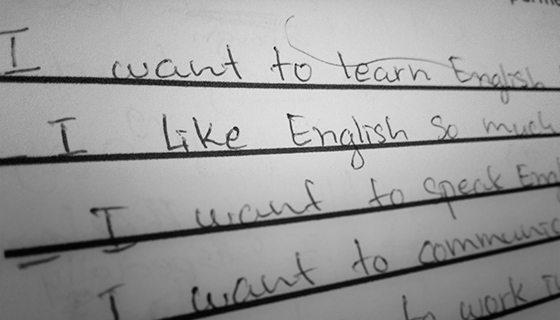 I want to learn English
I like English so much
I want to speak
I want to
to work